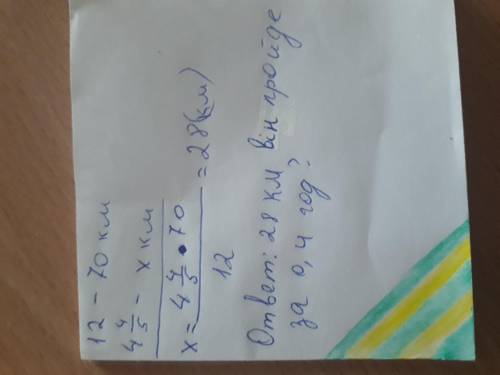 12 - 70 км
4 4/5 - х км
х = 4 4/5 • 70 / 12 = 28(км)
Ответ: 28 км він пройде
за 0,4 год.